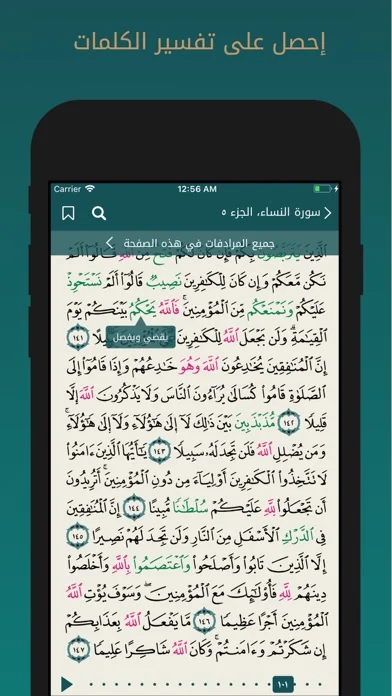 إحصل على تفسير الكلمات
Carrier 12:56 AM
سورة النساء، الجزء ٥
جميع المرادفات في هذه الصفحة
ٱلَّذِينَ يَتَرَبَّصُونَ بِكُمْ فَإِن كَانَ لَكُمْ فَتْحٌ مِّنَ ٱللَّهِ قَالُوٓا۟ أَلَمْ
نَكُن مَّعَكُمْ وَإِن كَانَ لِلْكَٰفِرِينَ نَصِيبٌ قَالُوٓا۟ أَلَمْ نَسْتَحْوِذْ
عَلَيْكُمْ وَنَمْنَعْكُم مِّنَ ٱلْمُؤْمِنِينَ ۚ فَٱللَّهُ يَحْكُمُ بَيْنَكُمْ يَوْمَ
ٱلْقِيَٰمَةِ ۗ وَلَن يَجْعَلَ ٱللَّهُ لِلْكَٰفِرِينَ ١٤١
يقضي ويفصل
إِنَّ ٱلْمُنَٰفِقِينَ يُخَٰدِعُونَ ٱللَّهَ وَهُوَ خَٰدِعُهُمْ وَإِذَا قَامُوٓا۟ إِلَى
ٱلصَّلَوٰةِ قَامُوا۟ كُسَالَىٰ يُرَآءُونَ ٱلنَّاسَ وَلَا يَذْكُرُونَ ٱللَّهَ إِلَّا
قَلِيلًا ١٤٢ مُّذَبْذَبِينَ بَيْنَ ذَٰلِكَ لَآ إِلَىٰ هَٰٓؤُلَآءِ وَلَآ إِلَىٰ هَٰٓؤُلَآءِ ۚ
وَمَن يُضْلِلِ ٱللَّهُ فَلَن تَجِدَ لَهُۥ سَبِيلًا ١٤٣ يَٰٓأَيُّهَا ٱلَّذِينَ ءَامَنُوا۟
لَا تَتَّخِذُوا۟ ٱلْكَٰفِرِينَ أَوْلِيَآءَ مِن دُونِ ٱلْمُؤْمِنِينَ ۚ أَتُرِيدُونَ
أَن تَجْعَلُوا۟ لِلَّهِ عَلَيْكُمْ سُلْطَٰنًا مُّبِينًا ١٤٤ إِنَّ ٱلْمُنَٰفِقِينَ
فِى ٱلدَّرْكِ ٱلْأَسْفَلِ مِنَ ٱلنَّارِ وَلَن تَجِدَ لَهُمْ نَصِيرًا ١٤٥
إِلَّا ٱلَّذِينَ تَابُوا۟ وَأَصْلَحُوا۟ وَٱعْتَصَمُوا۟ بِٱللَّهِ وَأَخْلَصُوا۟
دِينَهُمْ لِلَّهِ فَأُو۟لَٰٓئِكَ مَعَ ٱلْمُؤْمِنِينَ ۖ وَسَوْفَ يُؤْتِ ٱللَّهُ
ٱلْمُؤْمِنِينَ أَجْرًا عَظِيمًا ١٤٦ مَّا يَفْعَلُ ٱللَّهُ بِعَذَابِكُمْ
إِن شَكَرْتُمْ وَءَامَنتُمْ ۚ وَكَانَ ٱللَّهُ شَاكِرًا عَلِيمًا ١٤٧
١٠١